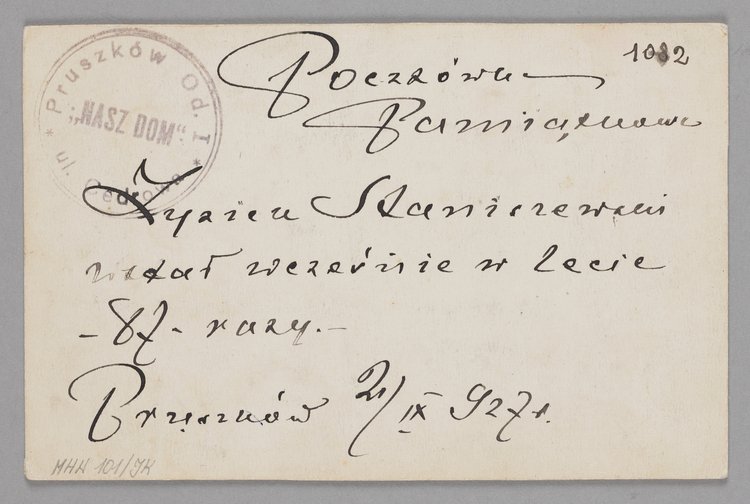 1032
Pruszków Od. I
"NASZ DOM"
ul. Cedrowa
Pocztówka
Pamiątkowa
Zysiek Staniszewski
wstał wcześnie w lecie
- 87 - razy. -
Pruszków 21/IX 927 r.
MHW 101/JK